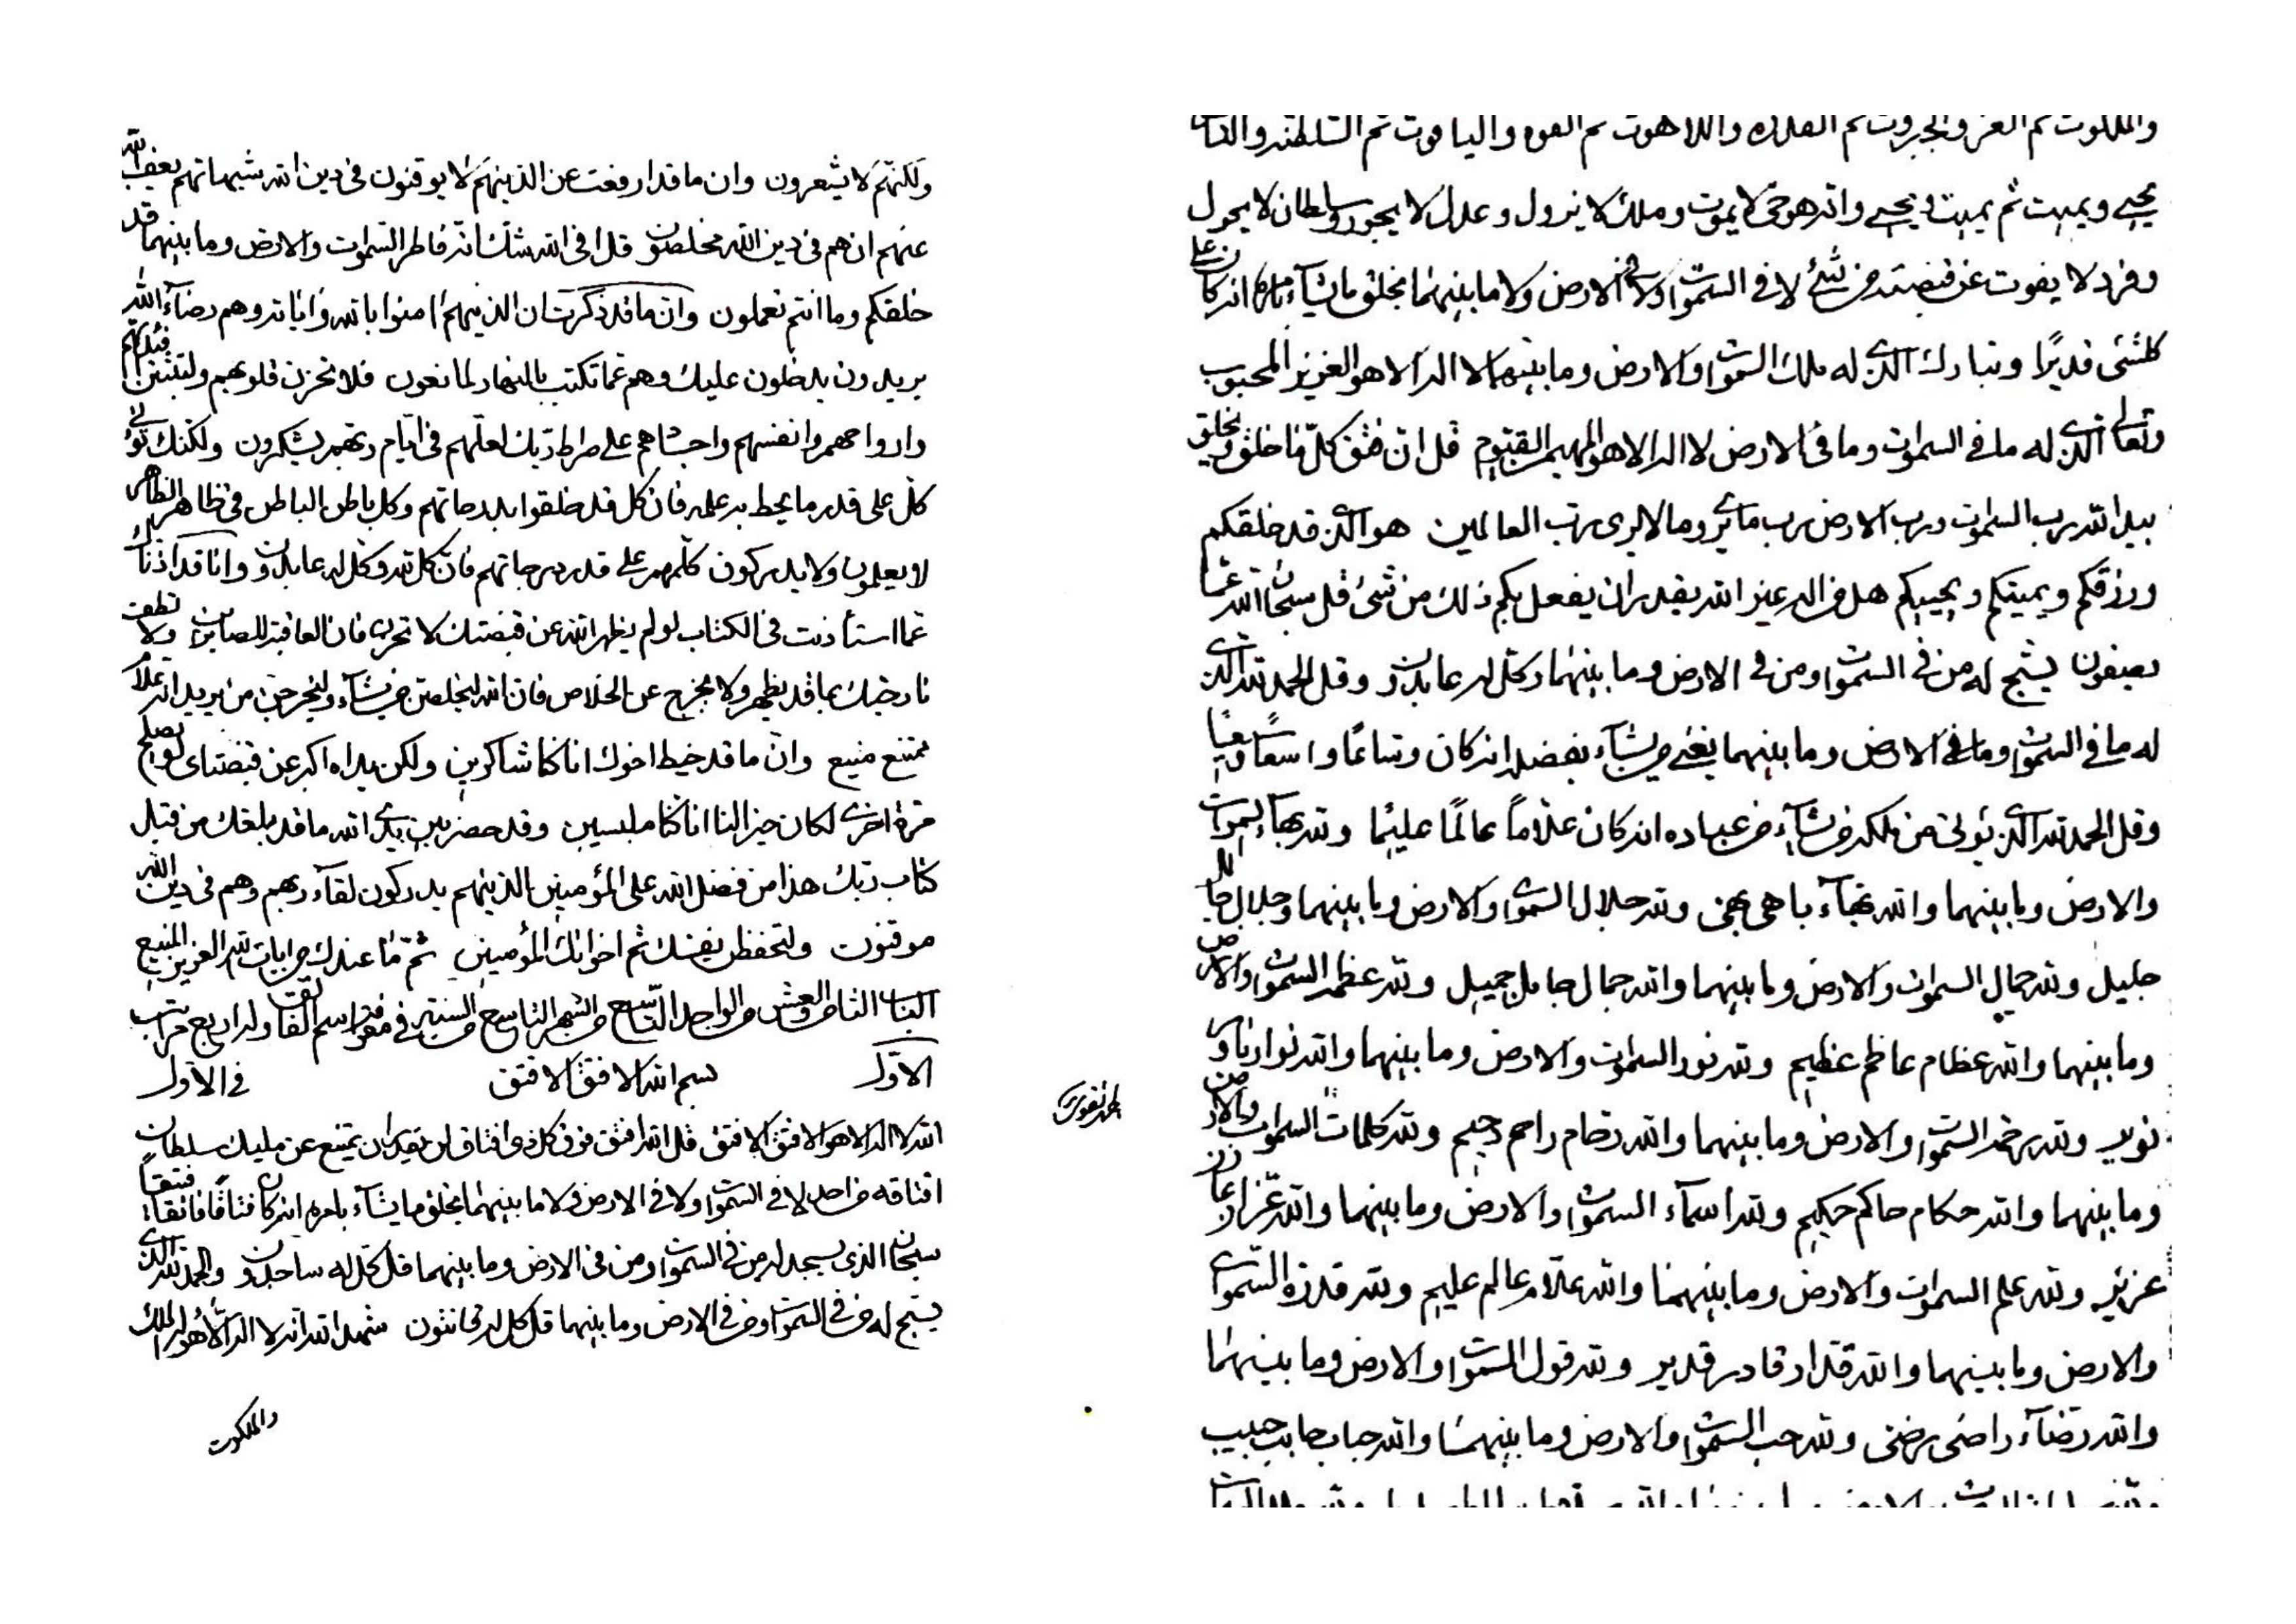 ولكنهم لا يشعرون وان ما قد ارفعت عن الذينهم لا يوقنون فى دين الله شبهاتهم يعف الله
عنهم ان هم فى دين الله مخلصون قل افى الله شك انه فاطر السموات والارض وما بينهما قد
خلقكم وما انتم تعملون وان ما قد ذكرت ان الذينهم امنوا بالله واياته وهم رضاء الله
يريدون يدخلون عليك وهم عما تكتب بالنهار لمانعون فلا تحزن قلوبهم ولتثبتن افئدتهم
وارواحهم وانفسهم واجسادهم على صراط ربك لعلهم فى ايام ربهم يشكرون ولكنك لا تؤ
كل على قدر ما يحط به علمه فان كل قد خلقوا بدرجاتهم وكل باطن الباطن فى ظاهر الظاهر
لا يعلمون ولا يدركون كلمهم على قدر درجاتهم فان كل لله وكل له عابدون وانا قد اذناك
عما استأذنت فى الكتاب لو لم يظهر الله عن قبضتك لا تحزن فان العاقبة للصابرين ولا تطف
نار حبك بما قد يظهر ولا تخرج عن الخلاص فان الله ليخلصن من يشاء وليخرجن من يريد انه علام
ممتنع منيع وان ما قد خيط اخوك انا كنا شاكرين ولكن يداه اكبر عن قبضتاى لو يصلح
مرة اخرى لكان خيرا لنا انا كنا ملبسين وقد حضر بين يدى الله ما قد بلغك من قبل
كتاب ربك هذا من فضل الله على المؤمنين الذينهم يدركون لقاء ربهم وهم فى دين الله
موقنون ولتحفظن نفسك ثم اخوانك المؤمنين ثم ما عندك من ايات الله العزيز المنيع
الباب الثامن والعشر من الواحد التاسع من الشهر التاسع من السنة فى معرفة اسم الفتاق وله اربع مراتب
الاول بسم الله الافتق الافتق فى الاول
الله لا اله الا هو الافتق الافتق قل الله افتق فوق كل ذى افتاق لن يقدر ان يمتنع عن مليك سلطان
افتاقه من احد لا فى السموات ولا فى الارض ولا ما بينهما يخلق ما يشاء بامره انه كان فتاقا فاتقا فتيقا
سبحان الذى يسجد له من فى السموات ومن فى الارض وما بينهما قل كل له ساجدون والحمد لله الذى
يسبح له من فى السموات ومن فى الارض وما بينهما قل كل له قانتون شهد الله انه لا اله الا هو له الملك
والملكوت
والملكوت ثم العز والجبروت ثم القدرة واللاهوت ثم القوة والياقوت ثم السلطنة والناسوت
يحيى ويميت ثم يميت ويحيى وانه هو حى لا يموت وملك لا يزول وعدل لا يجور وسلطان لا يحول
وفرد لا يفوت عن قبضته من شئ لا فى السموات ولا فى الارض ولا ما بينهما يخلق ما يشاء بامره انه كان على
كلشئ قديرا وتبارك الذى له ملك السموات والارض وما بينهما لا اله الا هو العزيز المحبوب
وتعالى الذى له ما فى السموات وما فى الارض لا اله الا هو المهيمن القيوم قل ان فتق كل ما خلق ويخلق
بيد الله رب السموات ورب الارض رب ما يرى وما لا يرى رب العالمين هو الذى قد خلقكم
ورزقكم ويميتكم ويحييكم هل من اله غير الله يقدر ان يفعل بكم ذلك من شئ قل سبحان الله عما
يصفون يسبح له من فى السموات ومن فى الارض وما بينهما وكل له عابدون وقل الحمد لله الذى
له ما فى السموات وما فى الارض وما بينهما يغنى من يشاء بفضله انه كان وساعا واسعا وسيعا
وقل الحمد لله الذى يؤتى من ملكه من يشاء من عباده انه كان علاما عالما عليما ولله بهاء السموات
والارض وما بينهما والله بهاء باهى بهى ولله جلال السموات والارض وما بينهما وجلال جالل
جليل ولله جمال السموات والارض وما بينهما والله جمال جامل جميل ولله عظمة السموات والارض
وما بينهما والله عظام عاظم عظيم ولله نور السموات والارض وما بينهما والله نوار ناور
نوير ولله رحمة السموات والارض وما بينهما والله رحام راحم رحيم ولله كلمات السموات والارض
وما بينهما والله حكام حاكم حكيم ولله اسماء السموات والارض وما بينهما والله عزاز عازز
عزيز ولله علم السموات والارض وما بينهما والله علام عالم عليم ولله قدرة السموات
والارض وما بينهما والله قدار قادر قدير ولله قول السموات والارض وما بينهما
والله رضاء راضى رضى ولله حب السموات والارض وما بينهما والله حباب حابب حبيب